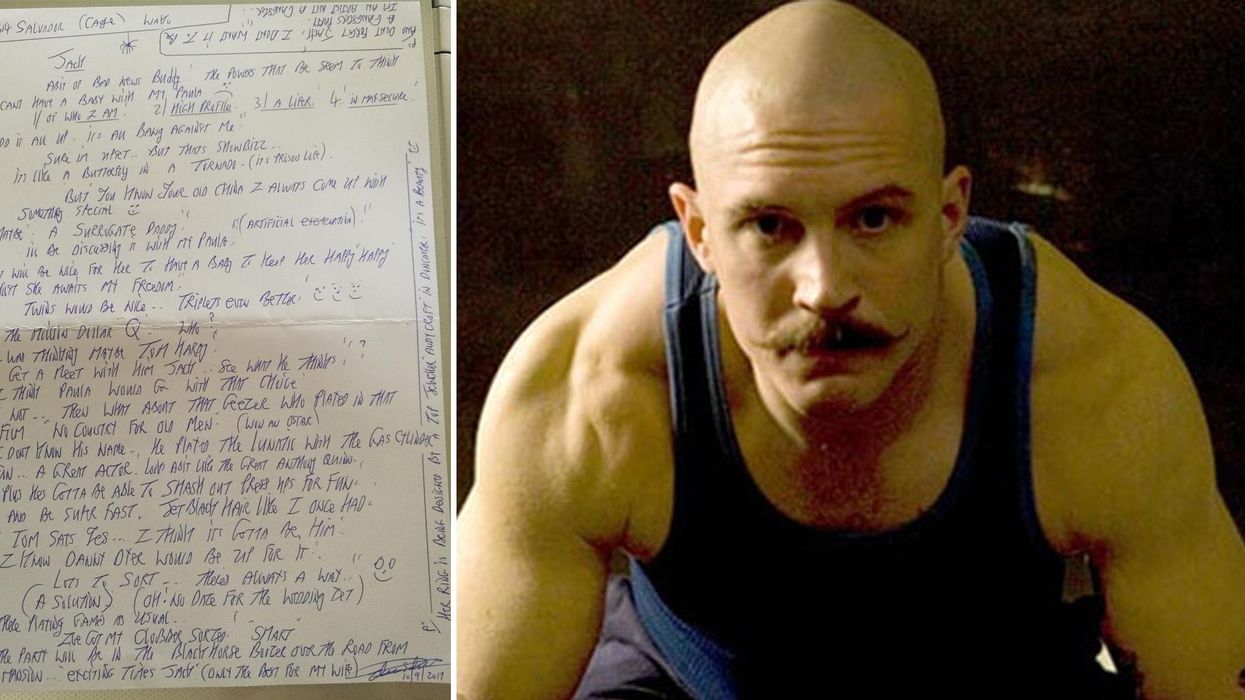 SALVADOR (CAGE)
P.S
AND DONT FORGET JACK. I DONT WANT IT TO BE
A GANGSTERS PARTY.
IM AN ARTIST NOT A GANGSTER
JACK
ABIT OF BAD NEWS BUDDY. THE POWERS THAT BE SEEM TO THINK
CANT HAVE A BABY WITH MY PAULA
1/ OF WHO I AM. 2/ HIGH PROFILE. 3/ A LIFER. 4. IN MAX SECURE.
DD IT ALL UP. ITS ALL BANG AGAINST ME.
SURE IM UPSET.. BUT THATS SHOWBIZZ..
ITS LIKE A BUTTERFLY IN A TORNADO. (ITS PRISON LIFE).
BUT YOU KNOW YOUR OLD CHINA I ALWAYS COME UP WITH
SOMETHING SPECIAL
A SURROGATE DADDY. "(ARTIFICIAL
IN BE DISCUSSING IT WITH MY PAULA.
WILL BE NICE FOR HER TO HAVE A BABY TO KEEP HER HAPPY HAPPY
SHE AWAITS MY FREEDOM.
TWINS WOULD BE NICE... TRIPLETS EVEN BETTER.
THE MILLION DOLLAR Q. WHO?
WAS THINKING MAYBE TOM HARDY.
GET A MEET WITH HIM JACK... SEE WHAT HE THINKS. ?
THINK PAULA WOULD GO WITH THAT CHOICE
NOT... THEN WHAT ABOUT THAT GEEZER WHO PLAYED IN THAT
FILM NO COUNTRY FOR OLD MEN. (WON AN OSTAR)
DONT KNOW HIS NAME.. HE PLAYED THE LUNATIC WITH THE GAS CYLINDER
UN... A GREAT ACTOR. LOOKD ABIT LIKE THE GREAT ANTHONY QUINN.
PLUS HES GOTTA BE ABLE TO SMASH OUT PRESS UPS FOR FUN.
AND BE SUPER FAST. JET BLACK HAIR LIKE I ONCE HAD.
TOM SAYS YES... I THINK ITS GOTTA BE HIM.
I KNOW DANNY DYER WOULD BE UP FOR IT.
LOTS TO SORT... THERES ALWAYS A WAY..
(A SOLUTION) (OH. NO DATE FOR THE WEDDING YET)
THERE PLAYING GAMES AS USUAL...
IVE GOT MY CLOBBER SORTED. SMART
THE PARTY WILL BE IN THE BLACK HORSE BOOZER OVER THE ROAD FROM
MANSION... EXCITING TIMES JACK (ONLY THE BEST FOR MY WIFE)
2017
HER RING IS BEING DESIGNED BY A TOP JEWELLER IN DONCASTER. ITS A BEAUTY